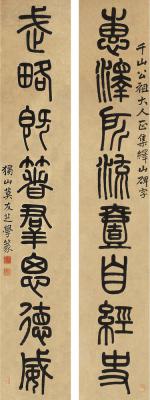 千山公祖大人正集繹山碑字
惠澤所流實自經史
武略既箸羣思德威
獨山莫友芝學篆